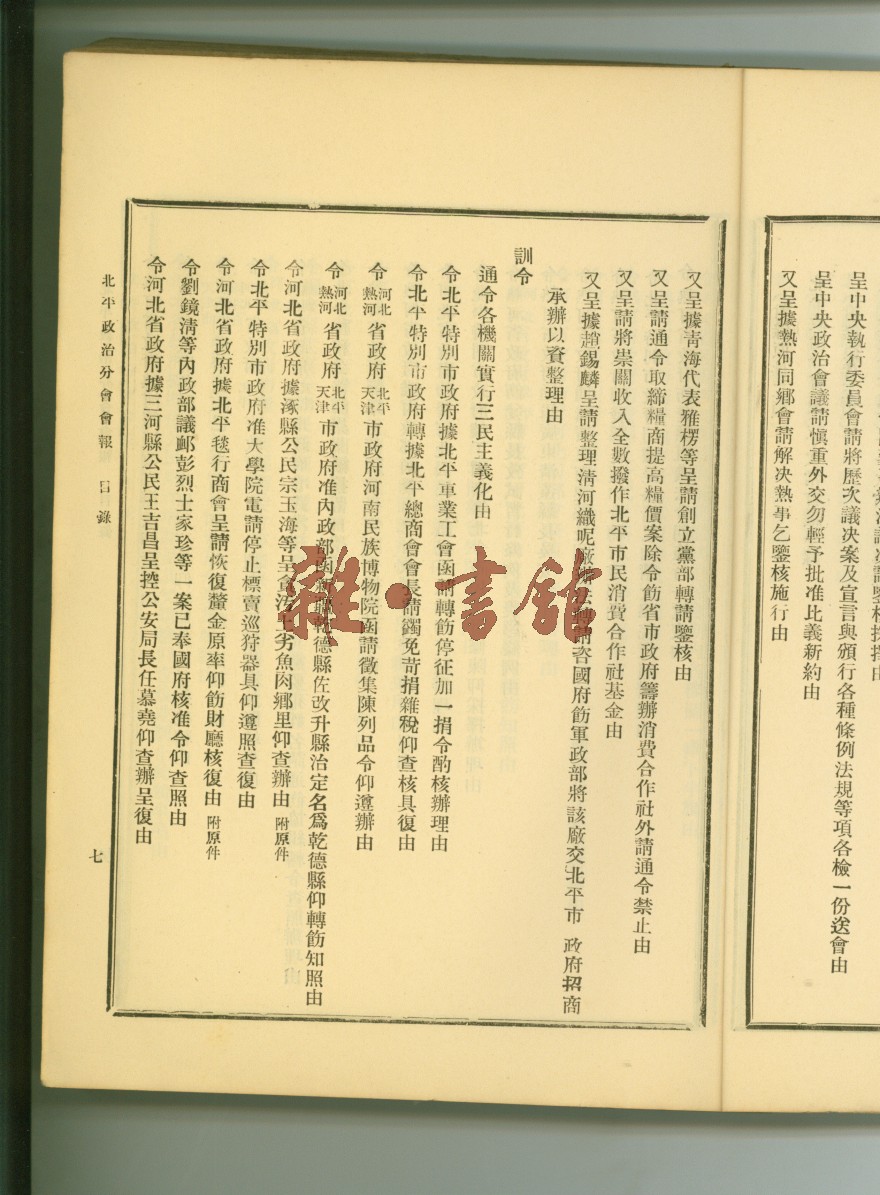 呈中央執行委員會請將歷次議决案及宣言與頒行各種條例法規等項各檢一份送會由
呈中央政治會議請愼重外交勿輕予批准比義新約由
又呈據熱河同鄉會請解决熱事乞鑒核施行由
又呈據靑海代表雅楞等呈請創立黨部轉請鑒核由
又呈請通令取締糧商提高糧價案除令飭省市政府籌辦消費合作社外請通令禁止由
又呈請將崇關收入全數撥作北平市民消費合作社基金由
又呈據趙錫麟呈請整理淸河織呢廠辦法轉請咨國府飭軍政部將該廠交北平市 政府招商
承辦以資整理由
訓令
通令各機關實行三民主義化由
令北平特別市政府據北平車業工會函請轉飭停征加一捐令酌核辦理由
令北平特別市政府轉據北平總商會會長請蠲免苛捐雜稅仰查核具復由
令 河北 熱河 省政府 北平 天津 市政府河南民族博物院函請徵集陳列品令仰遵辦由
令 河北 熱河 省政府 北平 天津 市政府准內政部函新疆乾德縣佐改升縣治定名爲乾德縣仰轉飭知照由
令河北省政府據涿縣公民宗玉海等呈貪汚土劣魚肉鄉里仰查辦由 附原件
令北平特別市政府准大學院電請停止標賣巡狩器具仰遵照查復由
令河北省政府據北平毯行商會呈請恢復釐金原率仰飭財廳核復由 附原件
令劉鏡淸等內政部議䘏彭烈士家珍等一案已奉國府核准令仰查照由
令河北省政府據三河縣公民王吉昌呈控公安局長任慕堯仰查辦呈復由
北平政治分會會報 目錄
七
雜·書館